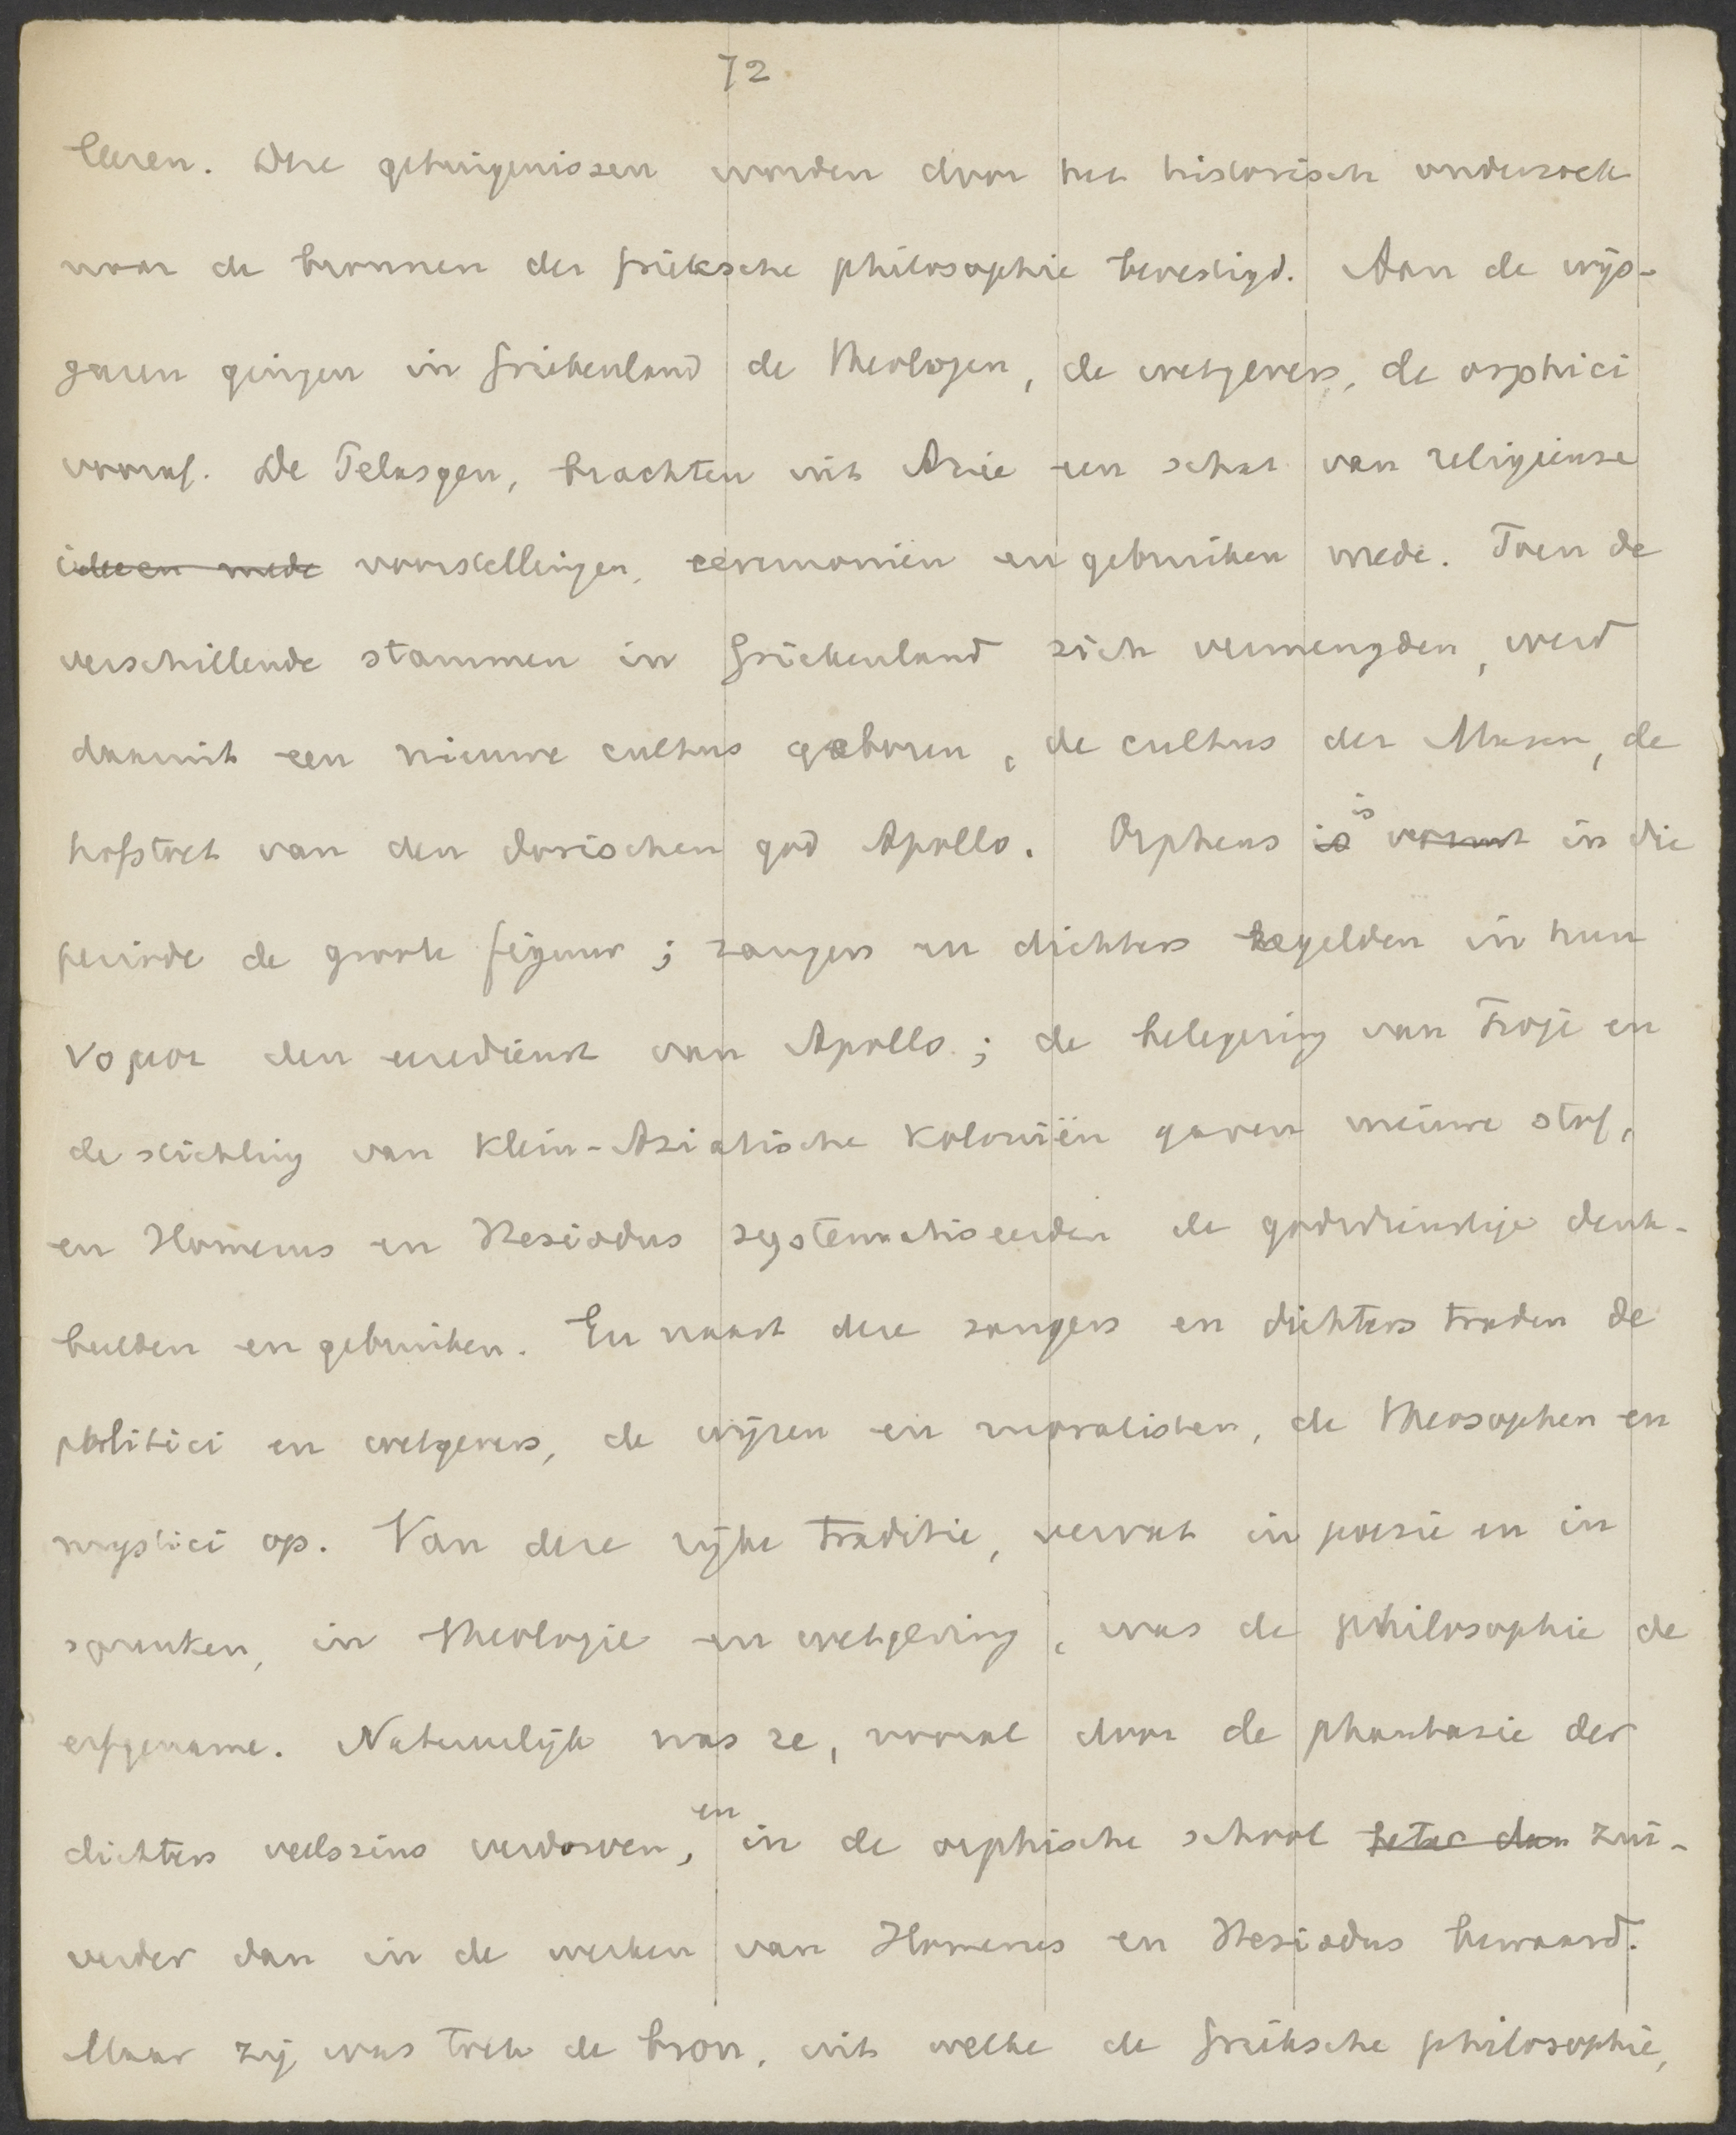 72
leeren. Deze getuigenissen worden door het historisch onderzoek
naar de bronnen der grieksche philosophie bevestigd. Aan de wijs-
geeren gingen in Griekenland de theologen, de wetgevers, de orphici
vooraf. De Pelasgen, brachten uit Azie een schat van religieuse
ideeen mede voorstellingen, ceremoniën en gebruiken mede. Toen de
verschillende stammen in Griekenland zich vermengden, werd
daaruit een nieuwe cultus geboren, de cultus der Muzen, de
hofstoet van den dorischen god Apollo. Orpheus is is vormt in die
periode de groote figuur; zangers en dichters regelden in hun
voor den eeredienst van Apollo; de belegering van Troje en
de stichting van Klein-Aziatische Koloniën gaven nieuwe stof,
en Homerus en Hesiodus systematiseerden de godsdienstige denk-
beelden en gebruiken. En naast deze zangers en dichters traden de
politici en wetgevers, de wijzen en moralisten, de theosophen en
mystici op. Van deze rijke traditie, vervat in poezie en in
spreuken, in theologie en wetgeving, was de philosophie de
erfgename. Natuurlijk was ze, vooral door de phantasie der
dichters veelszins verdorven, en in de orphische school beter dan zui-
verder dan in de werken van Homerus en Hesiodus bewaard.
Maar zij was toch de bron, uit welke de grieksche philosophie,